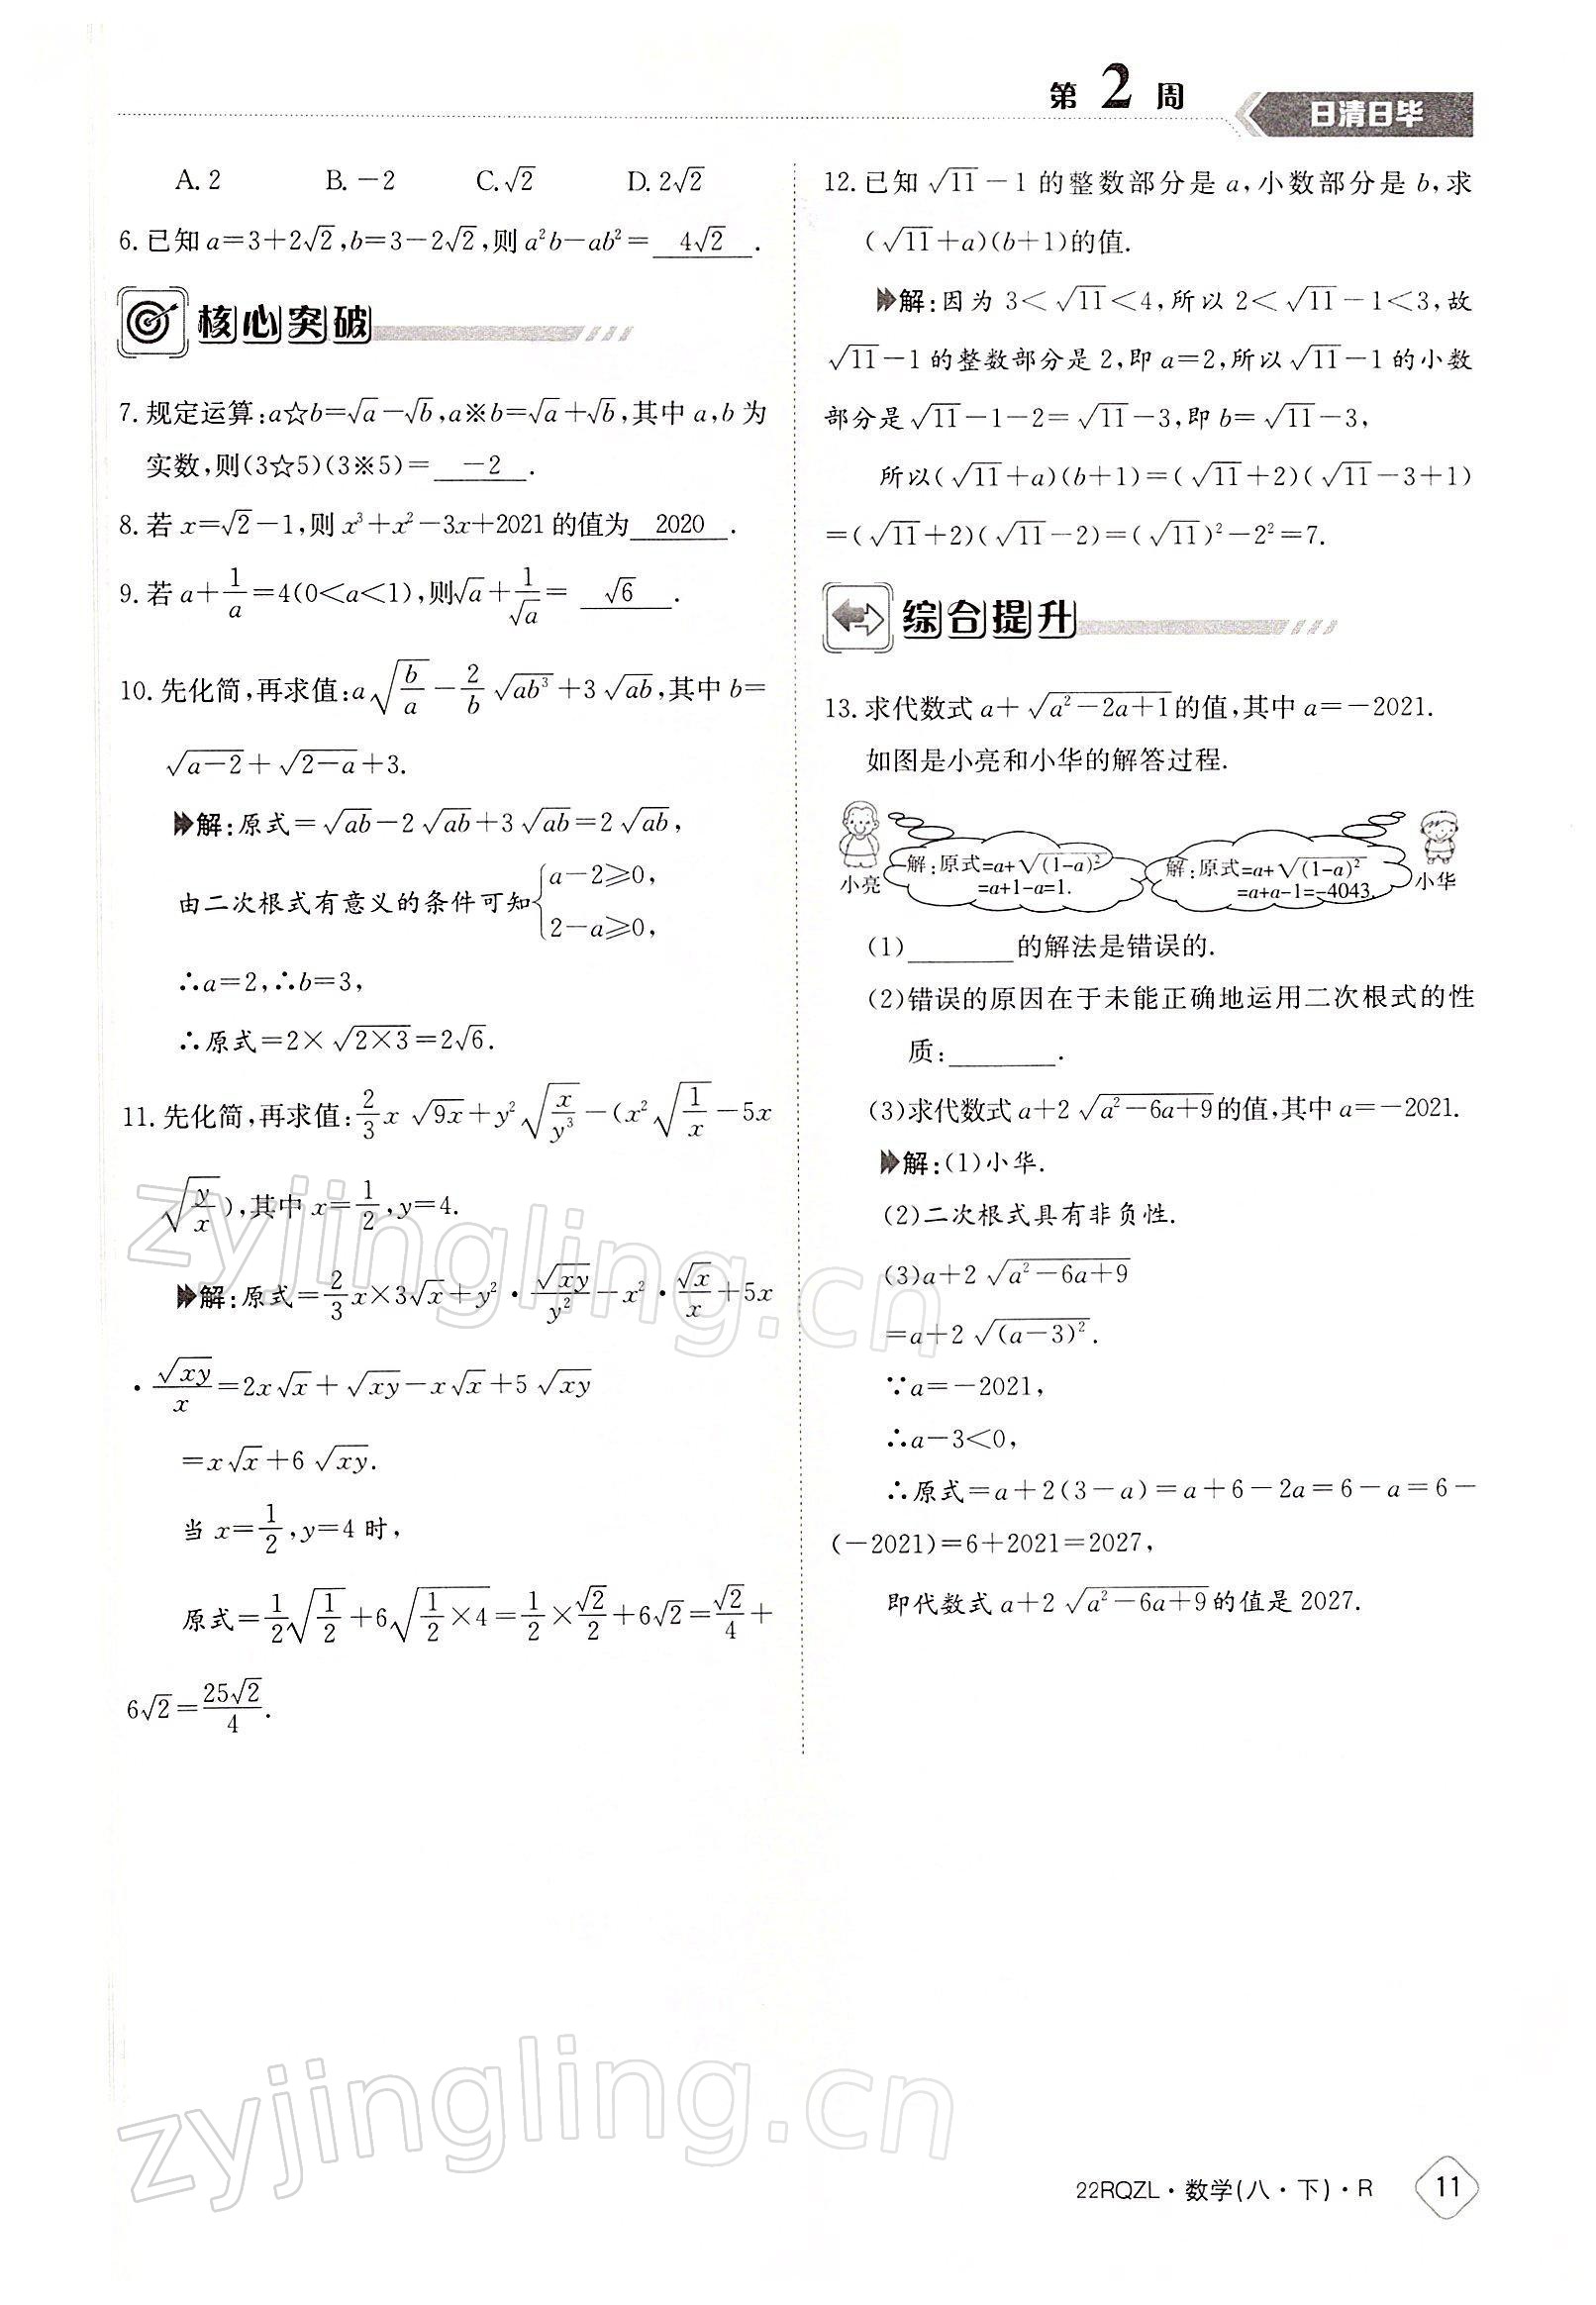 第 2 周
日清日毕
A. 2 B. －2 C. √2 D. 2√2
6. 已知 a＝3＋2√2,b＝3－2√2,则 a²b－ab²＝ 4√2 .
核心突破
7. 规定运算:a☆b＝√a－√b,a※b＝√a＋√b,其中 a,b 为
实数,则(3☆5)(3※5)＝ －2 .
8. 若 x＝√2－1,则 x³＋x²－3x＋2021 的值为 2020 .
9. 若 a＋1/a＝4(0＜a＜1),则√a＋1/√a＝ √6 .
10. 先化简,再求值:a√(b/a)－2/b √(ab³)＋3√(ab),其中 b＝
√(a－2)＋√(2－a)＋3.
解:原式＝√(ab)－2√(ab)＋3√(ab)＝2√(ab),
由二次根式有意义的条件可知{a－2≥0,
2－a≥0,
∴a＝2,∴b＝3,
∴原式＝2×√(2×3)＝2√6.
11. 先化简,再求值:2/3 x√(9x)＋y²√(x/y³)－(x²√(1/x)－5x
√(y/x)),其中 x＝1/2,y＝4.
解:原式＝2/3 x×3√x＋y²·√(xy)/y²－x²·√x/x＋5x
·√(xy)/x＝2x√x＋√(xy)－x√x＋5√(xy)
＝x√x＋6√(xy).
当 x＝1/2,y＝4 时,
原式＝1/2√(1/2)＋6√(1/2×4)＝1/2×√2/2＋6√2＝√2/4＋
6√2＝25√2/4.
12. 已知 √11－1 的整数部分是 a,小数部分是 b,求
(√11＋a)(b＋1)的值.
解:因为 3＜√11＜4,所以 2＜√11－1＜3,故
√11－1 的整数部分是 2,即 a＝2,所以√11－1 的小数
部分是√11－1－2＝√11－3,即 b＝√11－3,
所以(√11＋a)(b＋1)＝(√11＋2)(√11－3＋1)
＝(√11＋2)(√11－2)＝(√11)²－2²＝7.
综合提升
13. 求代数式 a＋√(a²－2a＋1)的值,其中 a＝－2021.
如图是小亮和小华的解答过程.
小亮
解:原式=a+√(1-a)²
=a+1-a=1.
解:原式=a+√(1-a)²
=a+a-1=-4043.
小华
(1)________的解法是错误的.
(2)错误的原因在于未能正确地运用二次根式的性
质:________.
(3)求代数式 a＋2√(a²－6a＋9)的值,其中 a＝－2021.
解:(1)小华.
(2)二次根式具有非负性.
(3)a＋2√(a²－6a＋9)
＝a＋2√(a－3)².
∵a＝－2021,
∴a－3＜0,
∴原式＝a＋2(3－a)＝a＋6－2a＝6－a＝6－
(－2021)＝6＋2021＝2027,
即代数式 a＋2√(a²－6a＋9)的值是 2027.
zyjingling.cn
zyjingling.cn
22RQZL·数学(八·下)·R 11